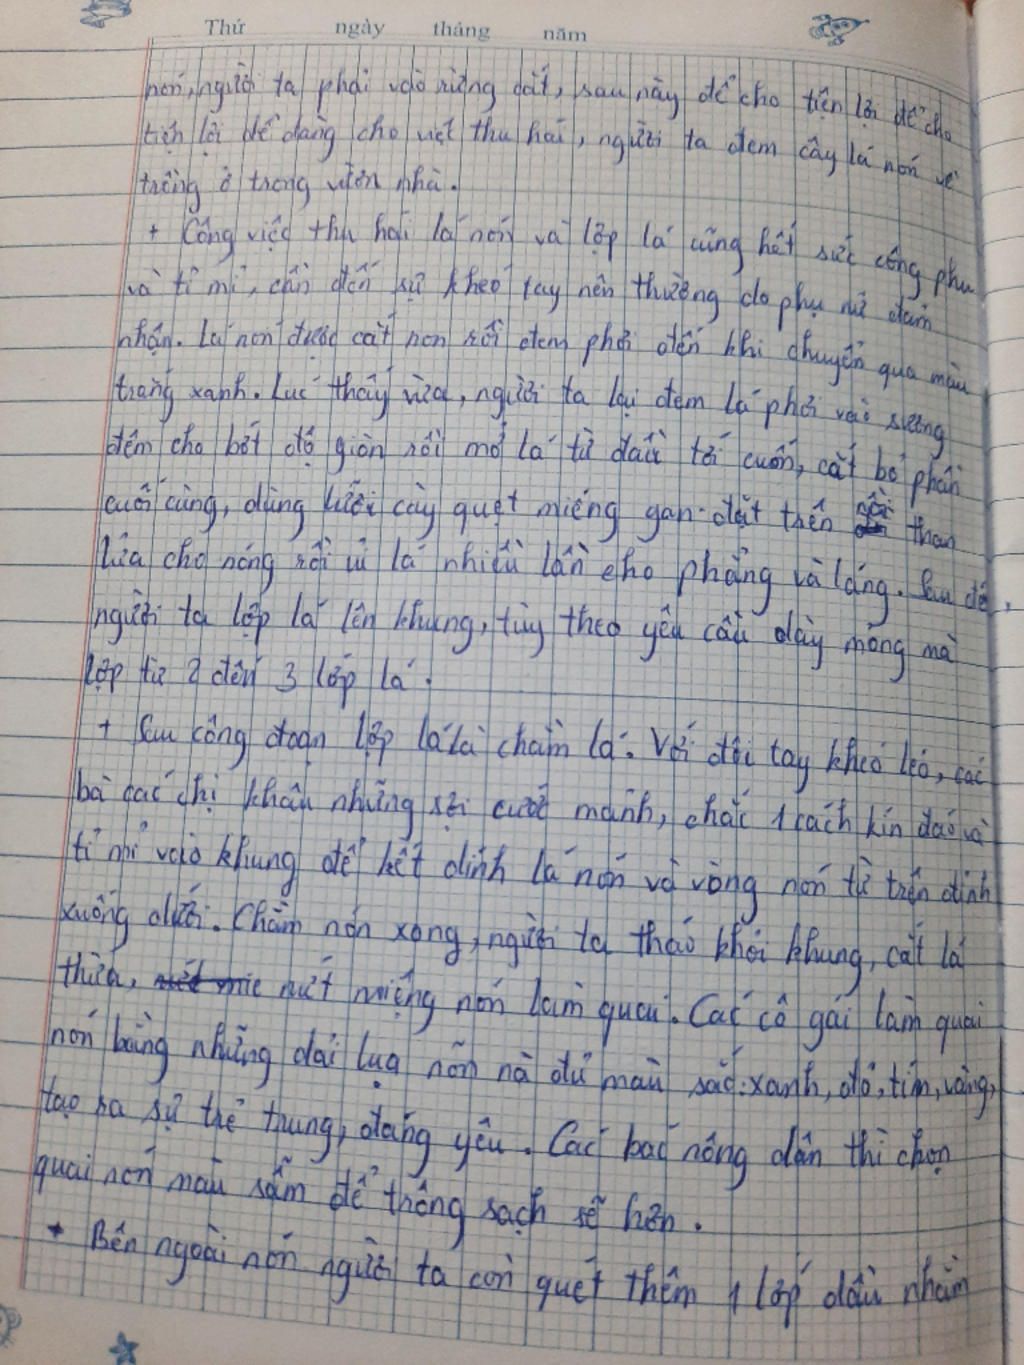 Thứ ngày tháng năm
nón, người ta phải vào rừng cắt, sau này để cho tiện lợi để cho
tiện lợi dễ dàng cho việt thu hái, người ta đem cây lá nón về
trồng ở trong vườn nhà.
+ Công việc thu hái lá nón và lợp lá cũng hết sức công phu
và tỉ mỉ, cần đến sự khéo tay nên thường do phụ nữ đảm
nhận. Lá nón được cắt non rồi đem phơi đến khi chuyển qua màu
trắng xanh. Lúc thấy vừa, người ta lại đem lá phơi vào sương
đêm cho bớt độ giòn rồi mở lá từ đầu tới cuốn, cắt bỏ phần
cuối cùng, dùng lưỡi cày quẹt miếng gan đặt trên nồi than
lửa cho nóng rồi ủi lá nhiều lần cho phẳng và láng. Sau đó,
người ta lợp lá lên khung, tùy theo yêu cầu dày mỏng mà
lợp từ 2 đến 3 lớp lá.
+ Sau công đoạn lợp lá là chằm lá. Với đôi tay khéo léo, các
bà các chị khâu những sợi cước mảnh, chắc 1 cách kín đáo và
tỉ mỉ vào khung để kết dính lá nón và vòng nón từ trên đỉnh
xuống dưới. Chằm nón xong, người ta tháo khỏi khung, cắt lá
thừa, nứt miệng nón làm quai. Các cô gái làm quai
nón bằng những dải lụa nõn nà đủ màu sắc: xanh, đỏ, tím, vàng,
tạo ra sự trẻ trung, đáng yêu. Các bác nông dân thì chọn
quai nón màu sẫm để trông sạch sẽ hơn.
+ Bên ngoài nón người ta còn quét thêm 1 lớp dầu nhằm